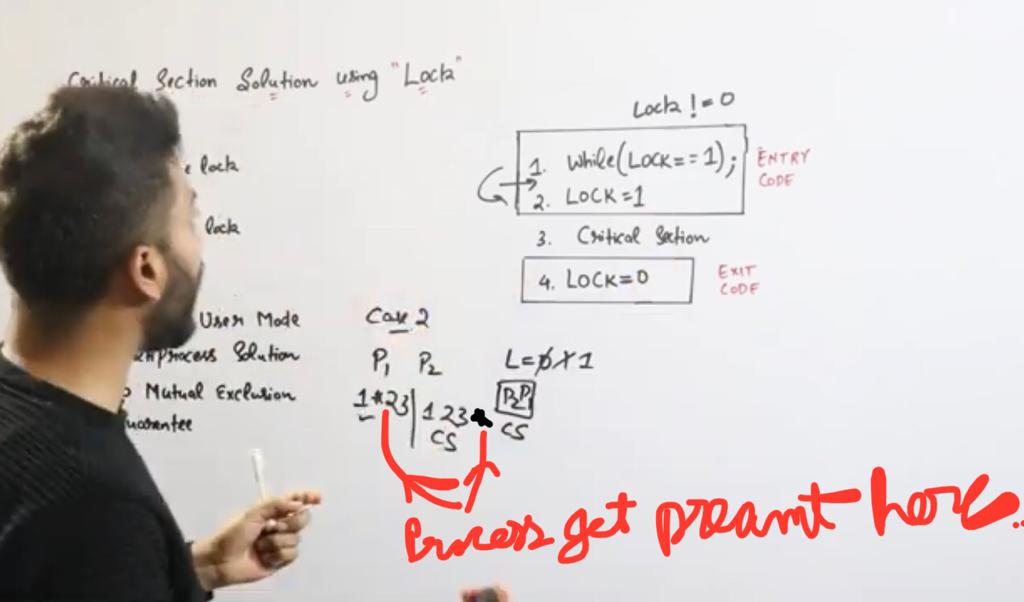 Critical Section Solution using "Lock"
lock
lock
User Mode
process Solution
Mutual Exclusion
Lock != 0
1. While(LOCK==1);
2. LOCK=1
ENTRY
CODE
3. Critical Section
4. LOCK=0
EXIT
CODE
Case 2
P1 P2
1*23 | 123
CS
L=0 X 1
CS
Process get preamt here..